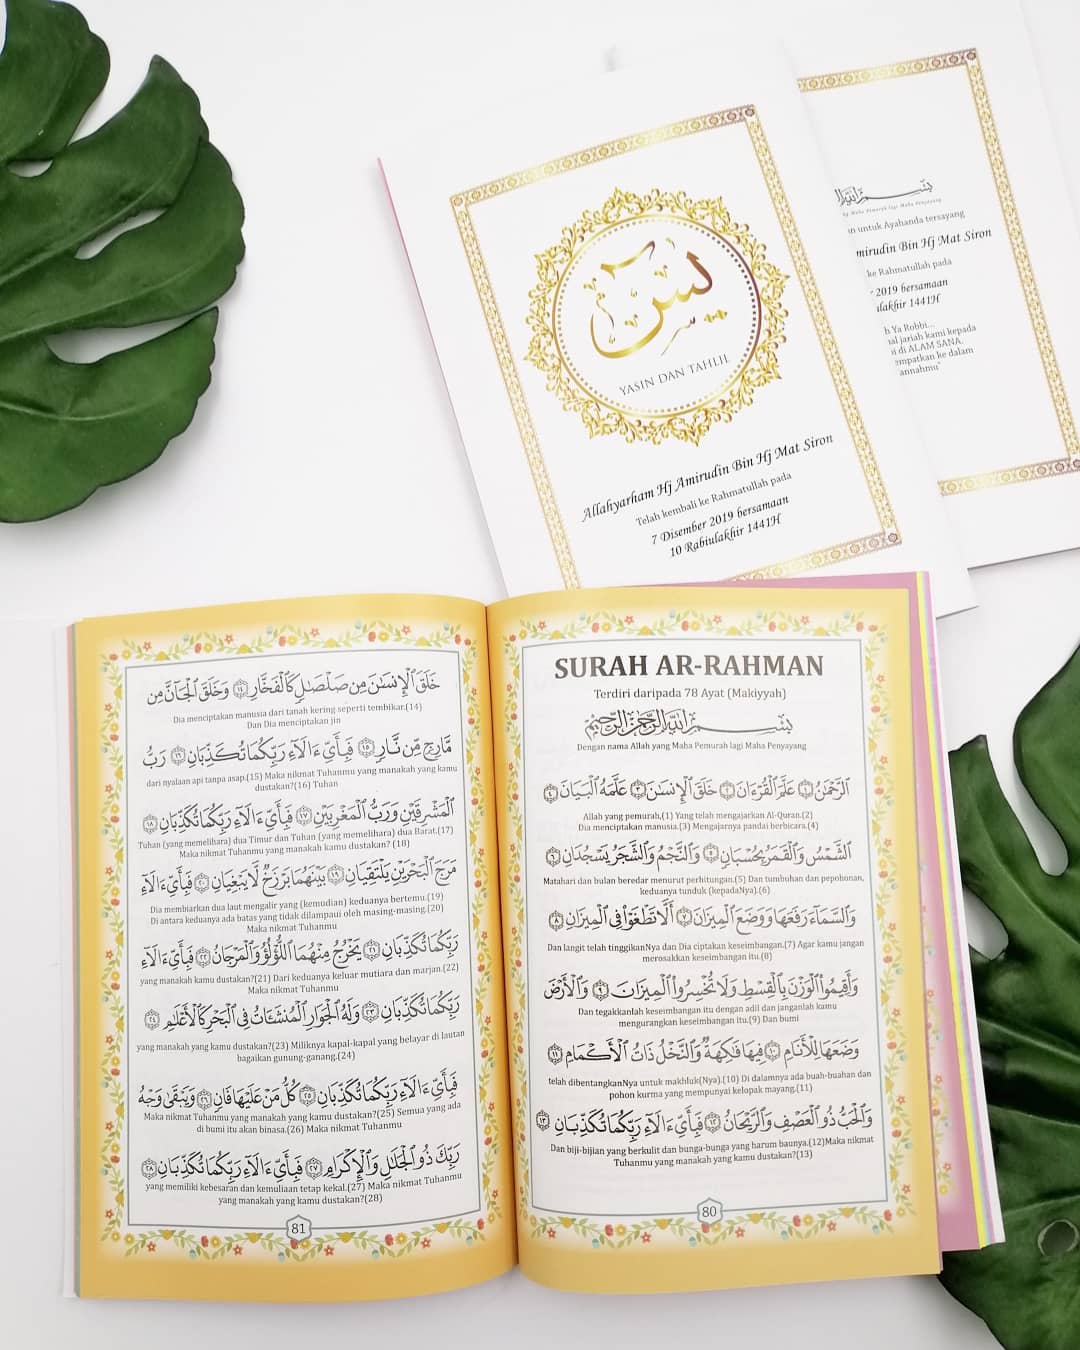 يس
YASIN DAN TAHLIL
Allahyarham Hj Amirudin Bin Hj Mat Siron
Telah kembali ke Rahmatullah pada
7 Disember 2019 bersamaan
10 Rabiulakhir 1441H
Maha Pemurah lagi Maha Penyayang
untuk Ayahanda tersayang
Bin Hj Mat Siron
ke Rahmatullah pada
2019 bersamaan
1441H
Ya Robbi...
jariah kami kepada
di ALAM SANA.
ke dalam
SURAH AR-RAHMAN
Terdiri daripada 78 Ayat (Makiyyah)
بِسْمِ اللَّهِ الرَّحْمَٰنِ الرَّحِيمِ
Dengan nama Allah yang Maha Pemurah lagi Maha Penyayang
ٱلرَّحْمَٰنُ ١ عَلَّمَ ٱلْقُرْءَانَ ٢ خَلَقَ ٱلْإِنسَٰنَ ٣ عَلَّمَهُ ٱلْبَيَانَ ٤
Allah yang pemurah,(1) Yang telah mengajarkan Al-Quran.(2)
Dia menciptakan manusia.(3) Mengajarnya pandai berbicara.(4)
ٱلشَّمْسُ وَٱلْقَمَرُ بِحُسْبَانٍ ٥ وَٱلنَّجْمُ وَٱلشَّجَرُ يَسْجُدَانِ ٦
Matahari dan bulan beredar menurut perhitungan.(5) Dan tumbuhan dan pepohonan,
keduanya tunduk (kepadaNya).(6)
وَٱلسَّمَآءَ رَفَعَهَا وَوَضَعَ ٱلْمِيزَانَ ٧ أَلَّا تَطْغَوْا۟ فِى ٱلْمِيزَانِ ٨
Dan langit telah tinggikanNya dan Dia ciptakan keseimbangan.(7) Agar kamu jangan
merosakkan keseimbangan itu.(8)
وَأَقِيمُوا۟ ٱلْوَزْنَ بِٱلْقِسْطِ وَلَا تُخْسِرُوا۟ ٱلْمِيزَانَ ٩ وَٱلْأَرْضَ
Dan tegakkanlah keseimbangan itu dengan adil dan janganlah kamu
mengurangkan keseimbangan itu.(9) Dan bumi
وَضَعَهَا لِلْأَنَامِ ١٠ فِيهَا فَٰكِهَةٌ وَٱلنَّخْلُ ذَاتُ ٱلْأَكْمَامِ ١١
telah dibentangkanNya untuk makhluk(Nya).(10) Di dalamnya ada buah-buahan dan
pohon kurma yang mempunyai kelopak mayang.(11)
وَٱلْحَبُّ ذُو ٱلْعَصْفِ وَٱلرَّيْحَانُ ١٢ فَبِأَىِّ ءَالَآءِ رَبِّكُمَا تُكَذِّبَانِ ١٣
Dan biji-bijian yang berkulit dan bunga-bunga yang harum baunya.(12)Maka nikmat
Tuhanmu yang manakah yang kamu dustakan?(13)
80
خَلَقَ ٱلْإِنسَٰنَ مِن صَلْصَٰلٍ كَٱلْفَخَّارِ ١٤ وَخَلَقَ ٱلْجَآنَّ مِن
Dia menciptakan manusia dari tanah kering seperti tembikar.(14)
Dan Dia menciptakan jin
مَّارِجٍ مِّن نَّارٍ ١٥ فَبِأَىِّ ءَالَآءِ رَبِّكُمَا تُكَذِّبَانِ ١٦ رَبُّ
dari nyalaan api tanpa asap.(15) Maka nikmat Tuhanmu yang manakah yang kamu
dustakan?(16) Tuhan
ٱلْمَشْرِقَيْنِ وَرَبُّ ٱلْمَغْرِبَيْنِ ١٧ فَبِأَىِّ ءَالَآءِ رَبِّكُمَا تُكَذِّبَانِ ١٨
Tuhan (yang memelihara) dua Timur dan Tuhan (yang memelihara) dua Barat.(17)
Maka nikmat Tuhanmu yang manakah yang kamu dustakan? (18)
مَرَجَ ٱلْبَحْرَيْنِ يَلْتَقِيَانِ ١٩ بَيْنَهُمَا بَرْزَخٌ لَّا يَبْغِيَانِ ٢٠ فَبِأَىِّ ءَالَآءِ
Dia membiarkan dua laut mengalir yang (kemudian) keduanya bertemu.(19)
Di antara keduanya ada batas yang tidak dilampaui oleh masing-masing.(20)
Maka nikmat Tuhanmu
رَبِّكُمَا تُكَذِّبَانِ ٢١ يَخْرُجُ مِنْهُمَا ٱللُّؤْلُؤُ وَٱلْمَرْجَانُ ٢٢ فَبِأَىِّ ءَالَآءِ
yang manakah kamu dustakan?(21) Dari keduanya keluar mutiara dan marjan.(22)
Maka nikmat Tuhanmu
رَبِّكُمَا تُكَذِّبَانِ ٢٣ وَلَهُ ٱلْجَوَارِ ٱلْمُنشَـَٔاتُ فِى ٱلْبَحْرِ كَٱلْأَعْلَٰمِ ٢٤
yang manakah yang kamu dustakan?(23) Miliknya kapal-kapal yang belayar di lautan
bagaikan gunung-ganang.(24)
فَبِأَىِّ ءَالَآءِ رَبِّكُمَا تُكَذِّبَانِ ٢٥ كُلُّ مَنْ عَلَيْهَا فَانٍ ٢٦ وَيَبْقَىٰ وَجْهُ
Maka nikmat Tuhanmu yang manakah yang kamu dustakan?(25) Semua yang ada
di bumi itu akan binasa.(26) Maka nikmat Tuhanmu
رَبِّكَ ذُو ٱلْجَلَٰلِ وَٱلْإِكْرَامِ ٢٧ فَبِأَىِّ ءَالَآءِ رَبِّكُمَا تُكَذِّبَانِ ٢٨
yang memiliki kebesaran dan kemuliaan tetap kekal.(27) Maka nikmat Tuhanmu
yang manakah yang kamu dustakan?(28)
81